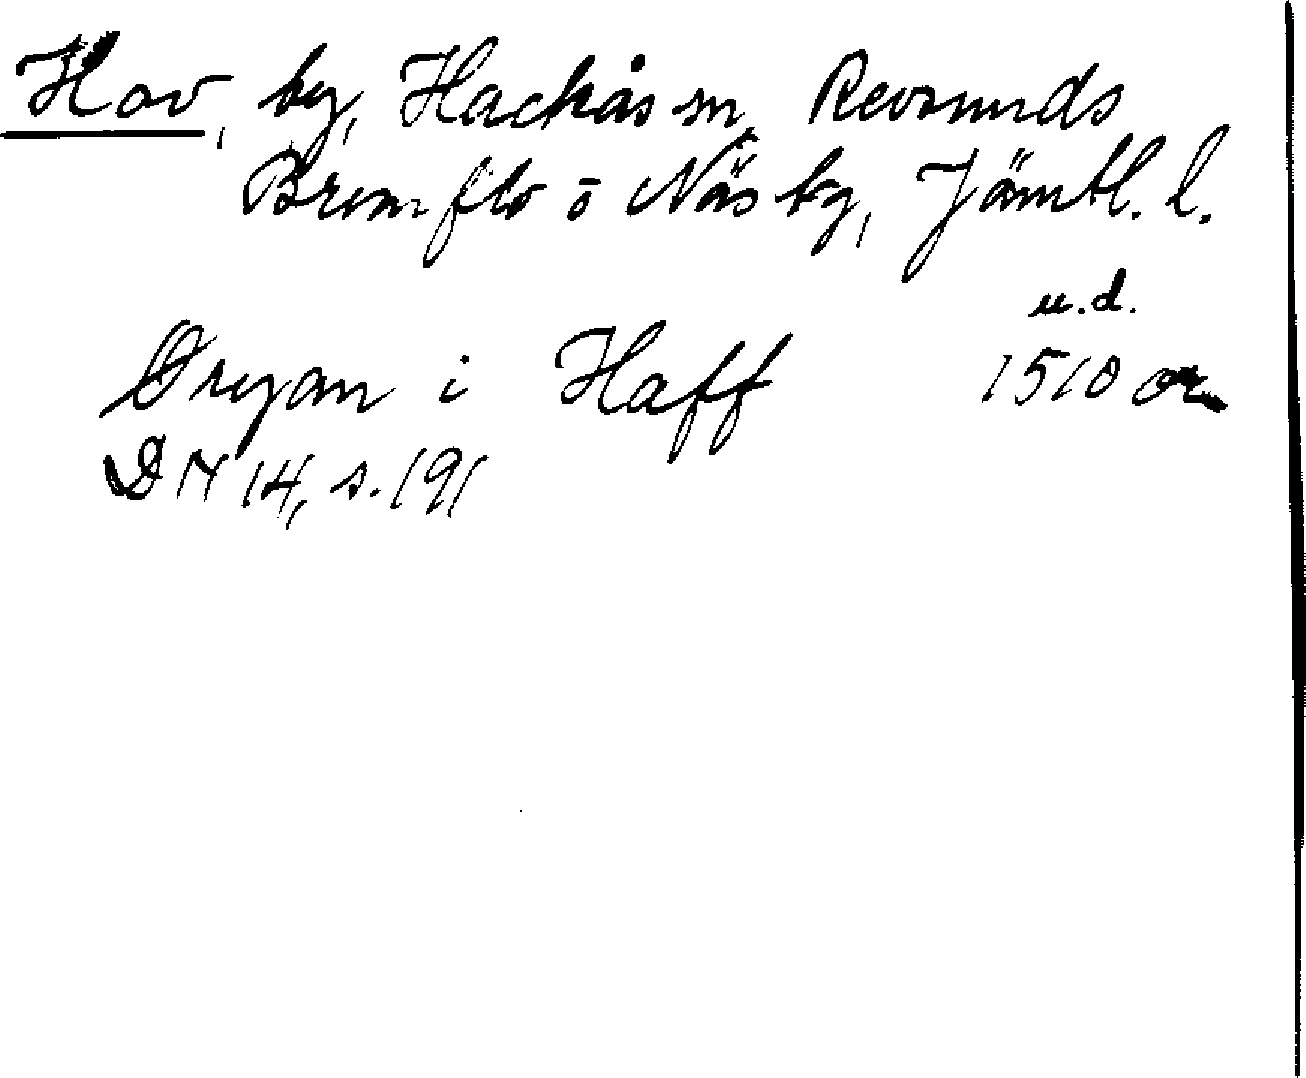 Hov, by, Hackås sn, Revsunds
Brunflo o Näs tg, Jämtl. l.
u.d.
Öryan i Haff 1510 or
DN 14, s. 191